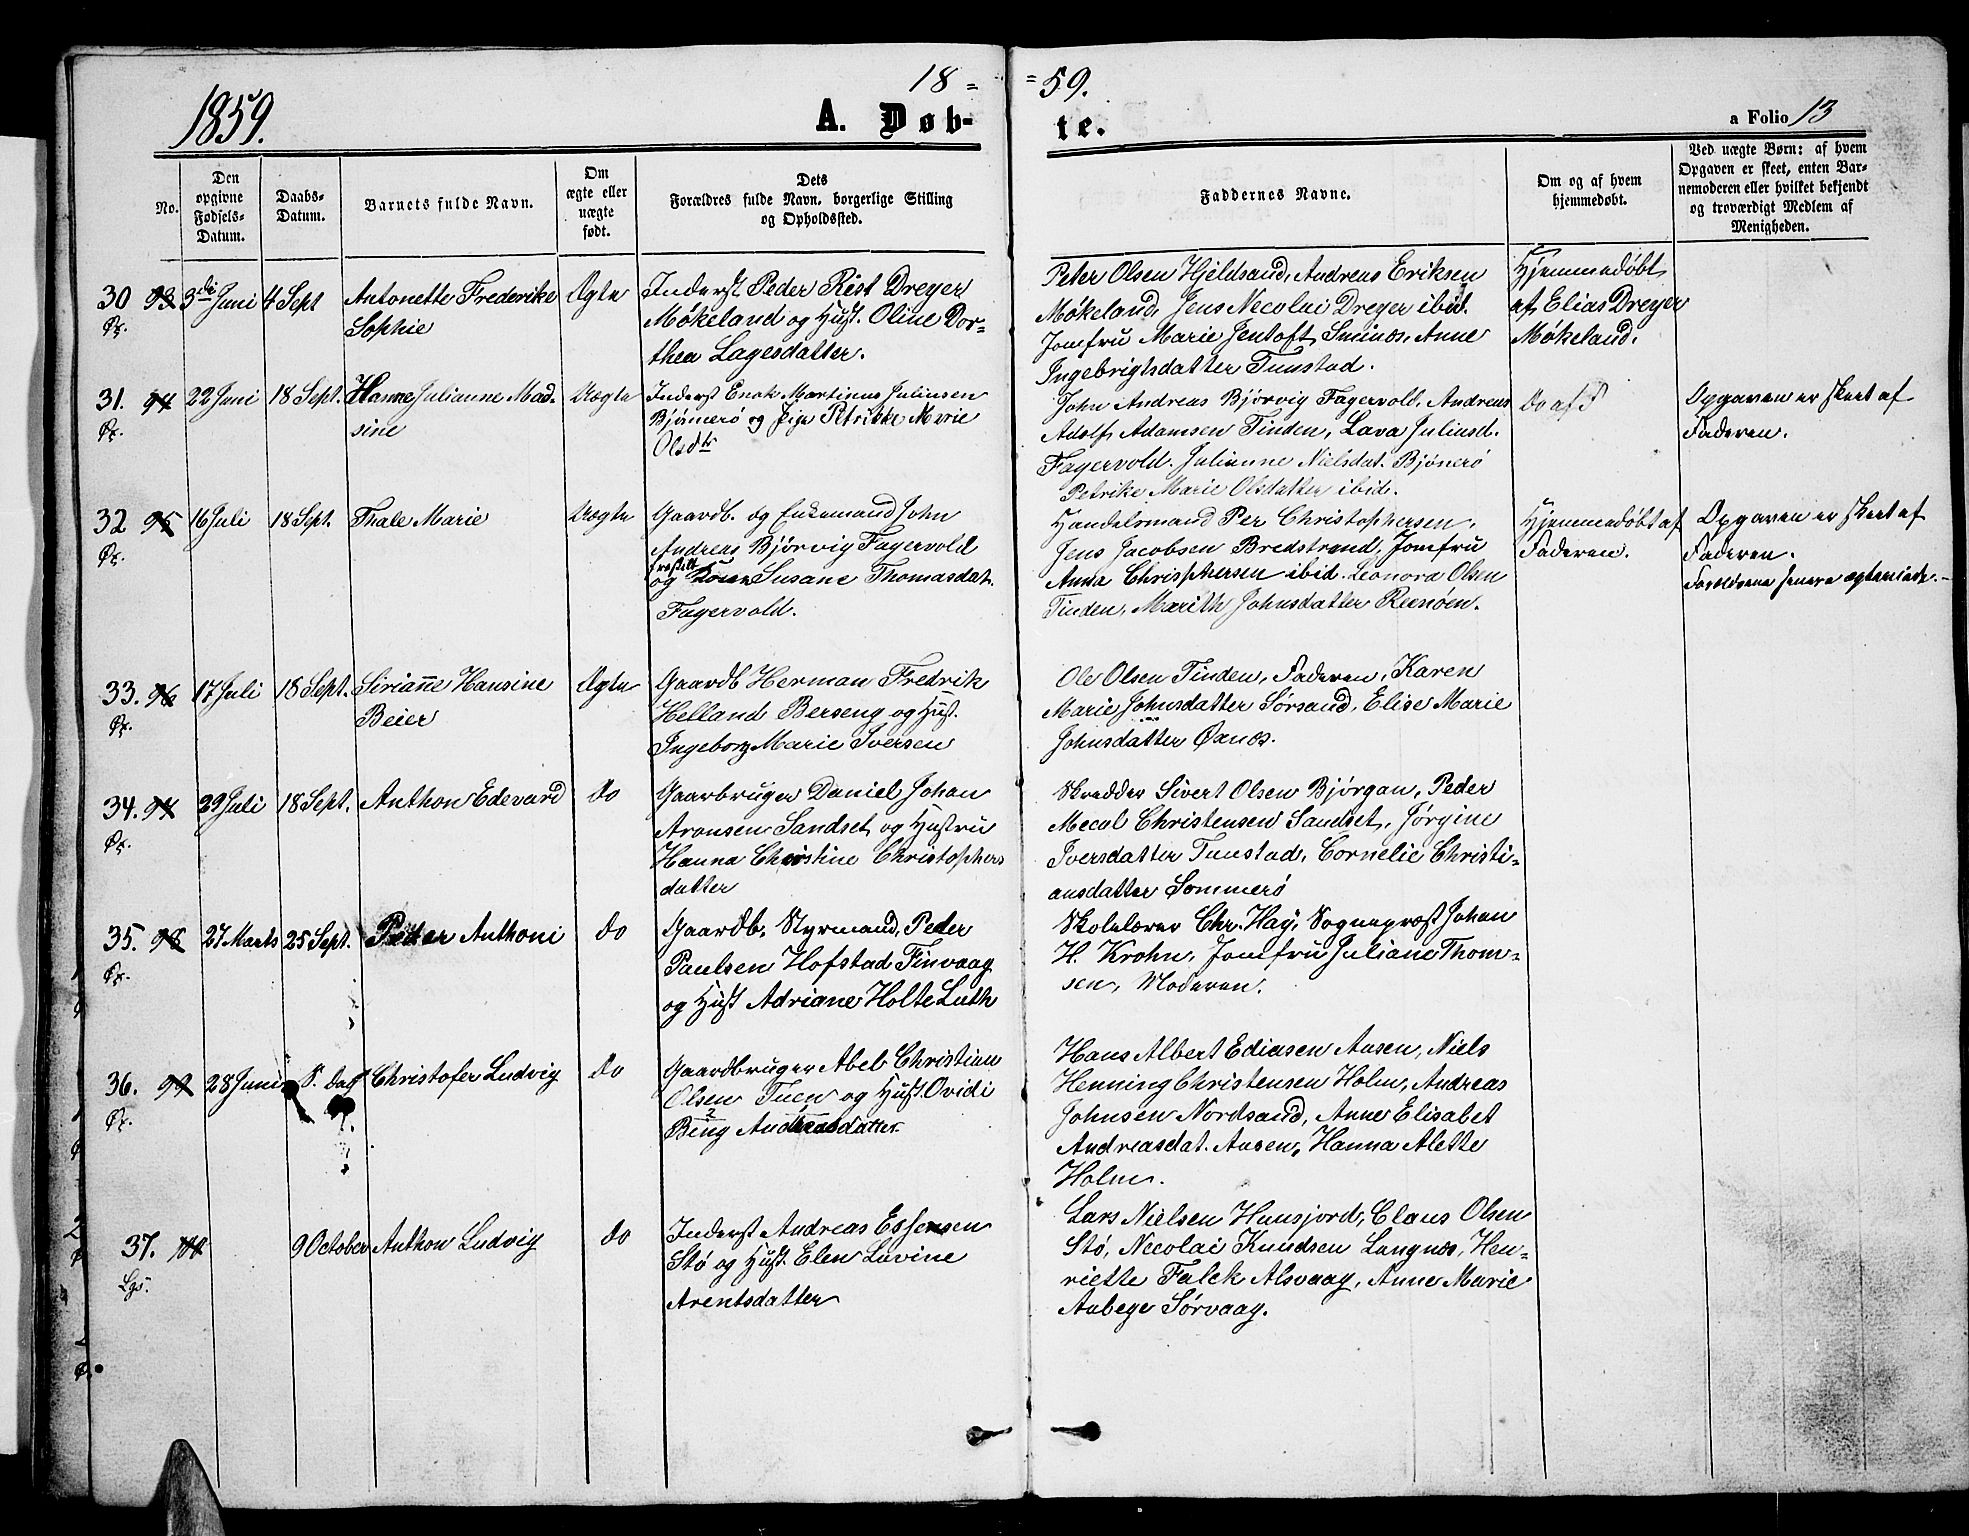 18 =
= 59.
1859.
A. Døb-
te.
a Folio 13
No.
Den
opgivne
Fødsels-
Datum.
Daabs-
Datum.
Barnets fulde Navn.
Om
ægte eller
uægte
født.
Dets
Forældres fulde Navn, borgerlige Stilling
og Opholdssted.
Faddernes Navne.
Om og af hvem
hjemmedøbt.
Ved uægte Børn: af hvem
Opgaven er skeet, enten Bar-
nemoderen eller hvilket bekjendt
og troværdigt Medlem af
Menigheden.
30 93 3die Juni 4 Sept Antonette Frederike Ægte
Øx. Sophie
Inderst Peder Rist Dreyer
Møkeland og Hust. Oline Dor-
thea Lagesdatter.
Peter Olsen Hjeldsand, Andreas Eriksen
Møkeland, Jens Necolai Dreyer ibid.
Jomfru Marie Jentoft Sminæs, Anne
Ingebrigtsdatter Tunstad.
Hjemmedøbt
af Elias Dreyer
Møkeland.
31. 94 22 Juni 18 Sept. Hanne Julianne Mad- Uægte
Øx. sine
Inderst Enok Martinus Juliusen
Bjønnerø og Pige Petrikke Marie
Olsdtr
John Andreas Bjørvig Fagervold, Andreas
Adolf Adamsen Tinden, Lava Juliusd.
Fagervold. Julianne Nielsdat. Bjønerø
Petrike Marie Olsdatter ibid.
Do af
Opgaven er skeet af
Faderen.
32 95 16 Juli 18 Sept. Thale Marie Uægte
Øx.
Gaardb. og Enkemand John
Andreas Bjørvig Fagervold
fraskilt
og Kone Susane Thomasdat.
Fagervold.
Handelsmand Per Christophersen,
Jens Jacobsen Bredstrand, Jomfru
Anna Christphersen ibid. Leonora Olsen
Tinden, Marith Johnsdatter Reenøen.
Hjemmedøbt af
Faderen.
Opgaven er skeet af
Faderen.
Forældrene senere ægteviede.
33. 96 17 Juli 18 Sept. Sirianne Hansine Ægte
Øx. Beier
Gaardb Herman Fredrik
Helland Berseng og Hust.
Ingeborg Marie Iversen
Ole Olsen Tinden, Faderen, Karen
Marie Johnsdatter Sørsand, Elise Marie
Johnsdatter Øxnæs.
34. 97 29 Juli 18 Sept. Anthon Edevard do
Øx.
Gaarbruger Daniel Johan
Aronsen Sandset og Hustru
Hanna Christine Christophers
datter
Skrædder Sivert Olsen Bjørgan, Peder
Mecal Christensen Sandset, Jørgine
Iversdatter Tunstad, Cornelie Christi-
ansdatter Sommerø
35. 98 27 Marts 25 Sept. Peder Anthoni do
Øx.
Gaardb. Styrmand, Peder
Paulsen Hofstad Finvaag
og Hust Adriane Holte Luth
Skolelærer Chr. Hay, Sognepræst Johan
H. Krohn, Jomfru Juliane Thom-
sen, Moderen.
36. 99 28 Juni S. Dag Christofer Ludvig do
Øx.
Gaardbruger Abel Christian
Olsen Tuen og Hust. Ovidi
Beng Andreasdatter
Hans Albert Ediasen Aasen, Niels
Henning Christensen Holm, Andreas
Johnsen Nordsand, Anne Elisabet
Andreasdat. Aasen, Hanna Alette
Holm.
37. 100 9 October Anthon Ludvig do
Lgs.
Inderst Andreas Essensen
Stø og Hust. Elen Lovine
Arentsdatter
Lars Nielsen Hunsjord, Claus Olsen
Stø, Necolai Knudsen Langnæs, Hen-
riette Falck Alsvaag, Anne Marie
Aabege Sørvaag.